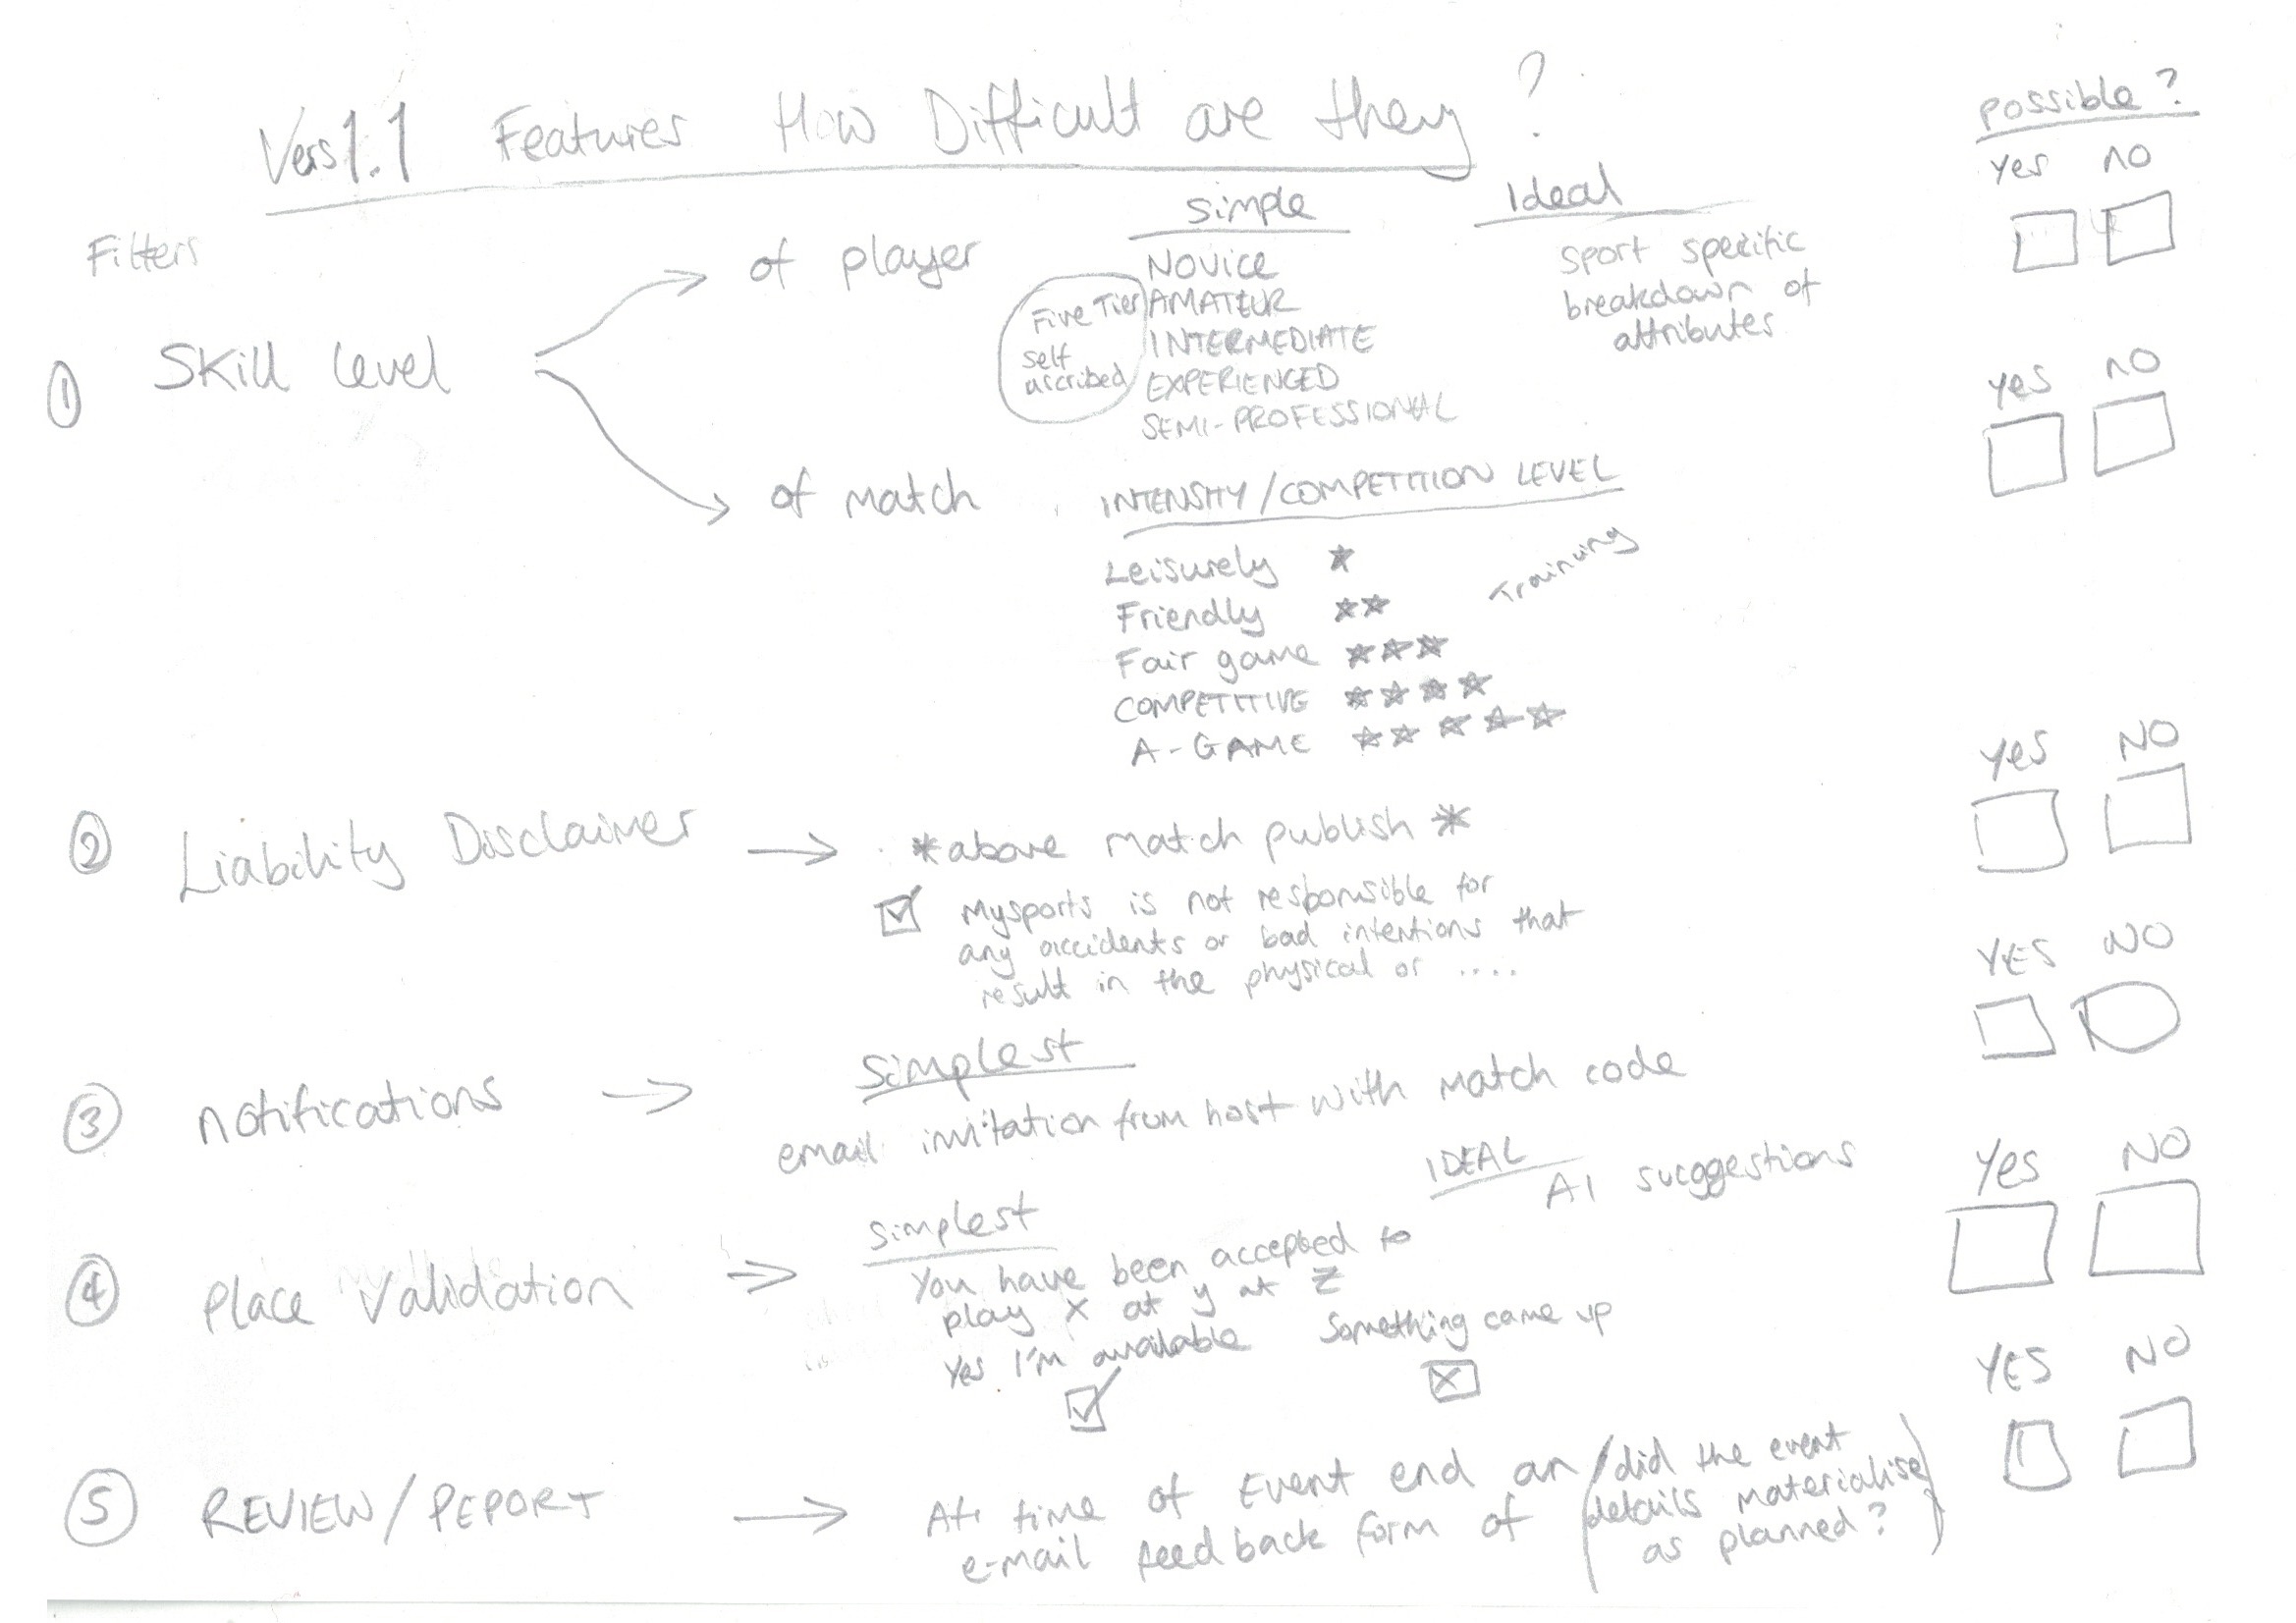 Vers 1.1 Features How Difficult are they?
possible?
yes no
Filters
① Skill level
of player
Simple
NOVICE
AMATEUR
INTERMEDIATE
EXPERIENCED
SEMI-PROFESSIONAL
Five Tier
self
ascribed
Ideal
Sport specific
breakdown of
attributes
yes no
of match
INTENSITY/COMPETITION LEVEL
Leisurely ★
Friendly ★★
Fair game ★★★
COMPETITIVE ★★★★
A-GAME ★★★★★
Training
yes NO
② Liability Disclaimer
*above match publish*
Mysports is not responsible for
any accidents or bad intentions that
result in the physical or ....
YES NO
③ notifications
Simplest
email invitation from host with match code
IDEAL
AI sucggestions
Yes NO
④ Place Validation
Simplest
You have been accepted to
play x at y at z
Yes I'm available Something came up
YES NO
⑤ REVIEW/REPORT
At time of Event end an
e-mail feedback form of
(did the event
details materialise
as planned?)